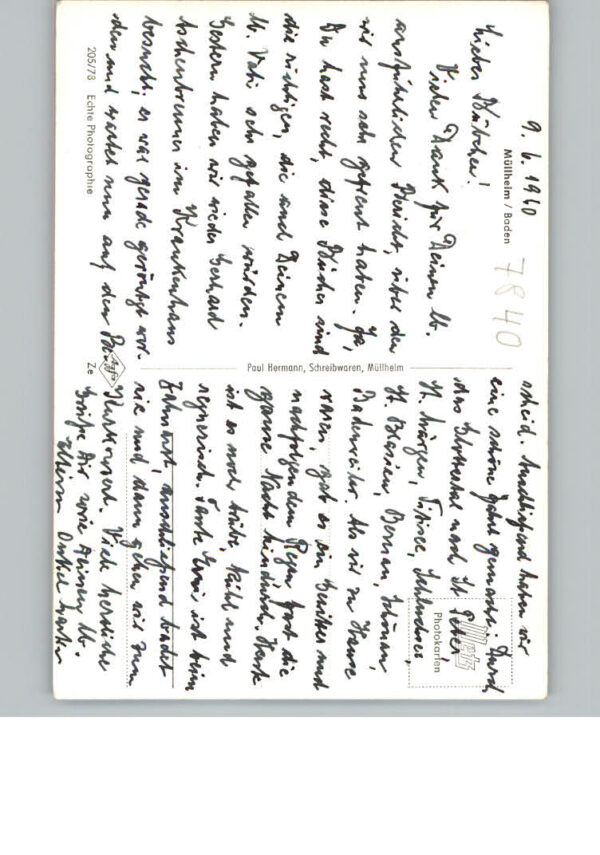 9. 6. 1960
Müllheim / Baden
7840
Liebes Bübchen!
Vielen Dank für Deinen lb.
ausführlichen Bericht, über den
wir uns sehr gefreut haben. Ja,
Du hast recht, diese Bücher sind
die richtigen, die auch Deinem
lb. Vati sehr gefallen würden.
Gestern haben wir wieder Gerhard
im Krankenhaus
besucht, er war gerade geröntgt wor-
den und wartet nun auf den
205/78 Echte Photographie
Agfa
Ze
Paul Hermann, Schreibwaren, Müllheim
Metz
Photokarten
scheid. Anschließend haben wir
eine schöne Fahrt gemacht: Durch
das Glottertal nach St. Peter
St. Märgen, Titisee, Schluchsee,
St. Blasien, Bernau, Schönau,
Badenweiler. Als wir zu Hause
waren, gab es ein Gewitter und
nachfolgendem Regen fast die
ganze Nacht hindurch. Heute
ist es noch trübe, kühl und
regnerisch. Tante ist beim
Zahnarzt, anschließend badet
sie und dann gehen wir zum
Kurkonzert. Viele herzliche
Grüße Dir sowie Deinen lb.
Eltern Onkel